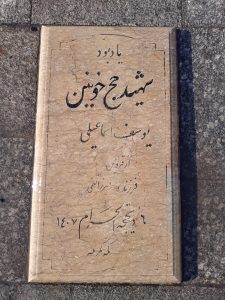 یادبود
شهید حج خونین
یوسف اسماعیلی
فرزند
۶ ذیحجه الحرام ۱۴۰۷
مکه مکرمه